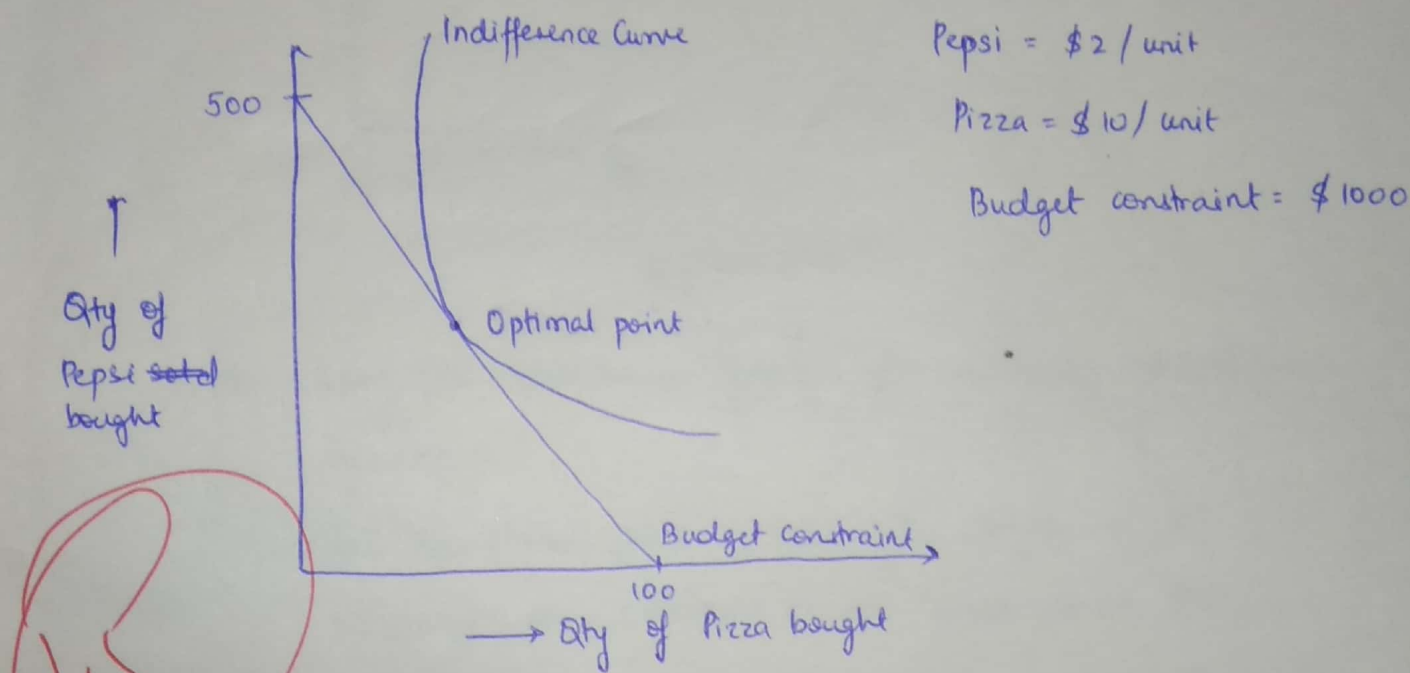 Indifference Curve
Pepsi = $2 / unit
500
Pizza = $10 / unit
Budget constraint = $1000
Qty of
Pepsi
bought
Optimal point
Budget constraint
100
Qty of Pizza bought